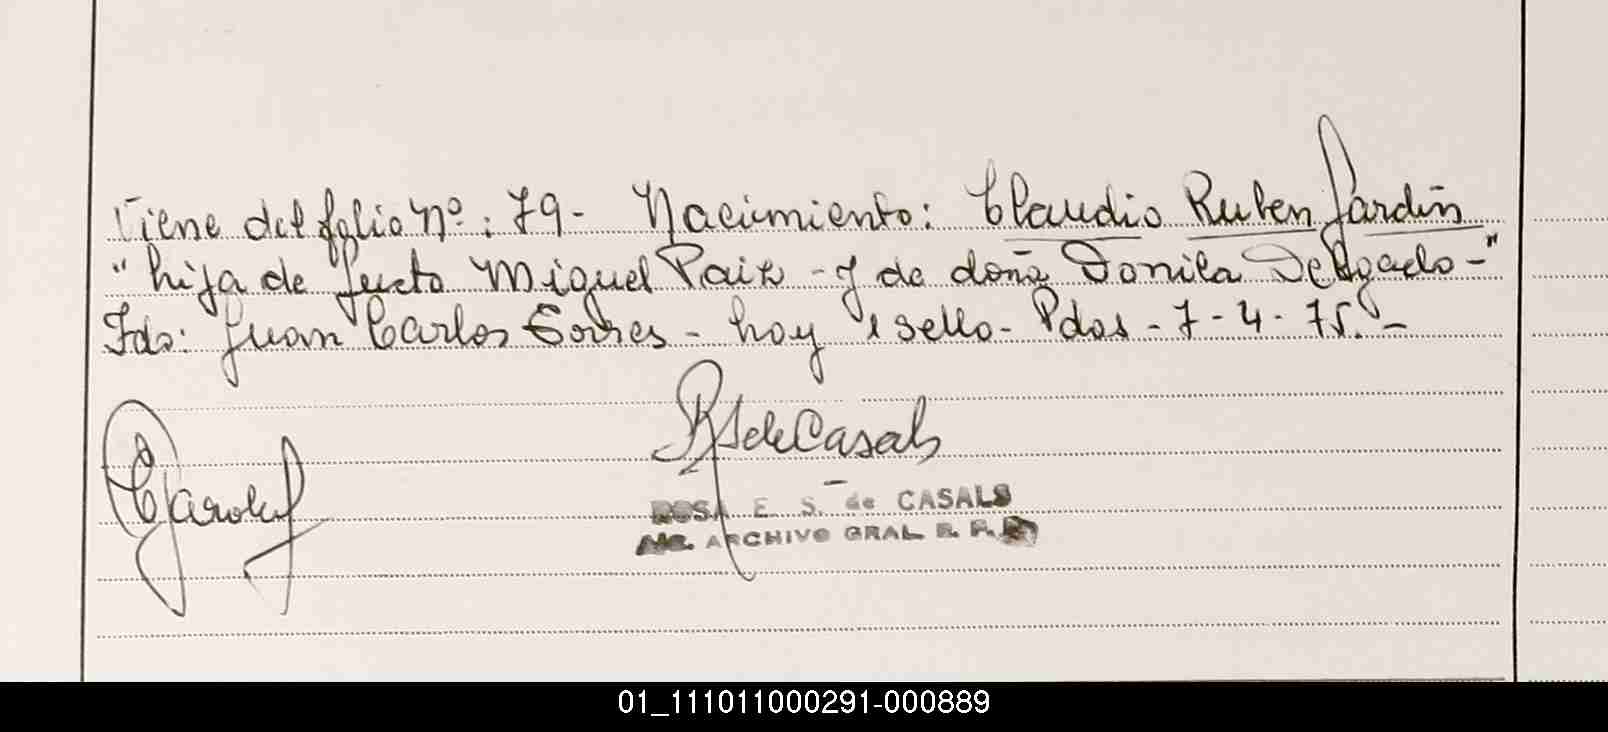 Viene del folio Nº: 79- Nacimiento: Claudio Ruben Jardín
"hija de Justo Miguel Paiz - y de doña Donila Delgado-"
Fdo: Juan Carlos Torres - hoy 1 sello - Pdas - 7 - 4 - 75.-
RSdeCasals
ROSA E. S. de CASALS
ARCHIVO GRAL R. P.
01_111011000291-000889